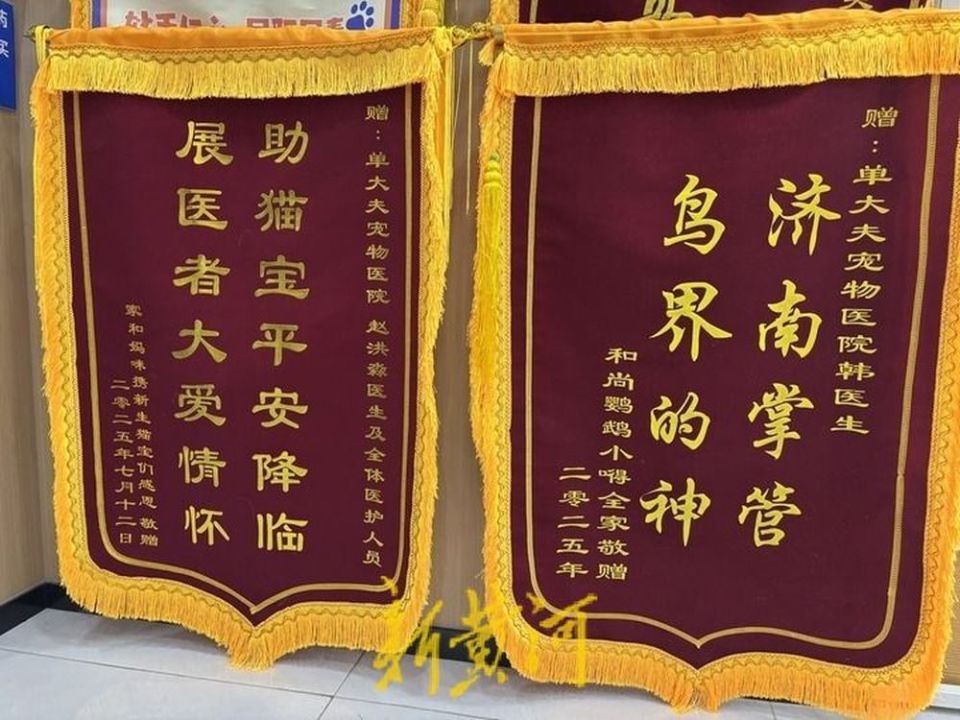 赠：单大夫宠物医院 赵洪淼医生及全体医护人员
助猫宝平安降临
展医者大爱情怀
家和妈咪携新生猫宝们感恩 敬赠
二零二五年七月十二日
赠：单大夫宠物医院韩医生
济南掌管
鸟界的神
和尚鹦鹉小嘚全家敬赠
二零二五年
新黄河